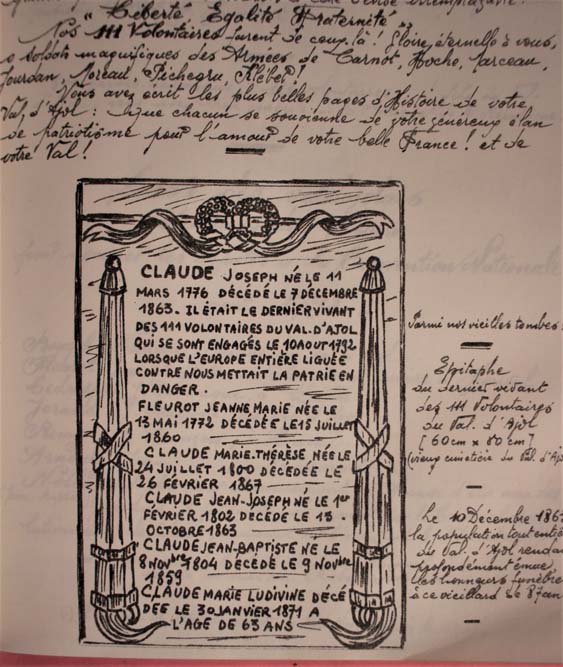 "Liberté Egalité Fraternité".
Nos 111 Volontaires furent de ceux là! Gloire éternelle à vous,
o soldats magnifiques des Armées de Carnot, Hoche, Marceau,
Jourdan, Moreau, Pichegru, Kléber!
Vous avez écrit les plus belles pages d'Histoire de votre
Val, d'Ajol : que chacun se souvienne de votre généreux élan
de patriotisme pour l'amour de votre belle France! et de
votre Val!
CLAUDE JOSEPH NÉ LE 11
MARS 1776 DÉCÉDÉ LE 7 DÉCEMBRE
1863. IL ÉTAIT LE DERNIER VIVANT
DES 111 VOLONTAIRES DU VAL.D'AJOL
QUI SE SONT ENGAGÉS LE 10 AOUT 1792
LORSQUE L'EUROPE ENTIÈRE LIGUÉE
CONTRE NOUS METTAIT LA PATRIE EN
DANGER.
FLEUROT JEANNE MARIE NÉE LE
13 MAI 1772 DÉCÉDÉE LE 15 JUILLET
1860
CLAUDE MARIE.THÉRÈSE NÉE LE
24 JUILLET 1800 DÉCÉDÉE LE
26 FÉVRIER 1867
CLAUDE JEAN-JOSEPH NÉ LE 1er
FÉVRIER 1802 DÉCÉDÉ LE 13.
OCTOBRE 1863
CLAUDE JEAN-BAPTISTE NE LE
8 NOVbre 1804 DECEDE LE 9 NOVbre
1859
CLAUDE MARIE LUDIVINE DÉCÉ
DEE LE 30 JANVIER 1871 A
L'AGE DE 63 ANS
Parmi nos vieilles tombes:
Epitaphe
du dernier vivant
des 111 Volontaires
du Val. d'Ajol
[60cm x 80cm]
(vieux cimetière du Val. d'Ajol
Le 10 Décembre 186
la population tout enti
du Val. d'Ajol rendait
profondément émue,
les honneurs funèbre
à ce vieillard de 87 ans